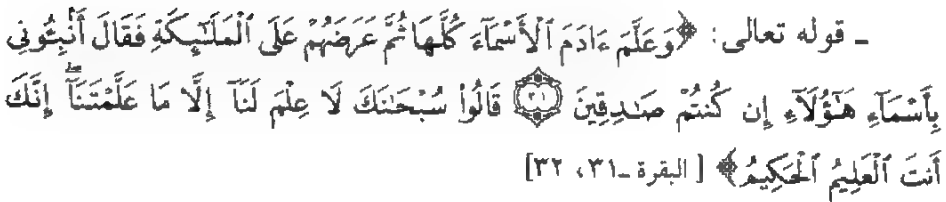 ـ قوله تعالى: ﴿وَعَلَّمَ ءَادَمَ ٱلْأَسْمَآءَ كُلَّهَا ثُمَّ عَرَضَهُمْ عَلَى ٱلْمَلَـٰٓئِكَةِ فَقَالَ أَنۢبِـُٔونِى
بِأَسْمَآءِ هَـٰٓؤُلَآءِ إِن كُنتُمْ صَـٰدِقِينَ ۝٣١ قَالُوا۟ سُبْحَـٰنَكَ لَا عِلْمَ لَنَآ إِلَّا مَا عَلَّمْتَنَآ ۖ إِنَّكَ
أَنتَ ٱلْعَلِيمُ ٱلْحَكِيمُ﴾ [ البقرة ـ٣١، ٣٢]